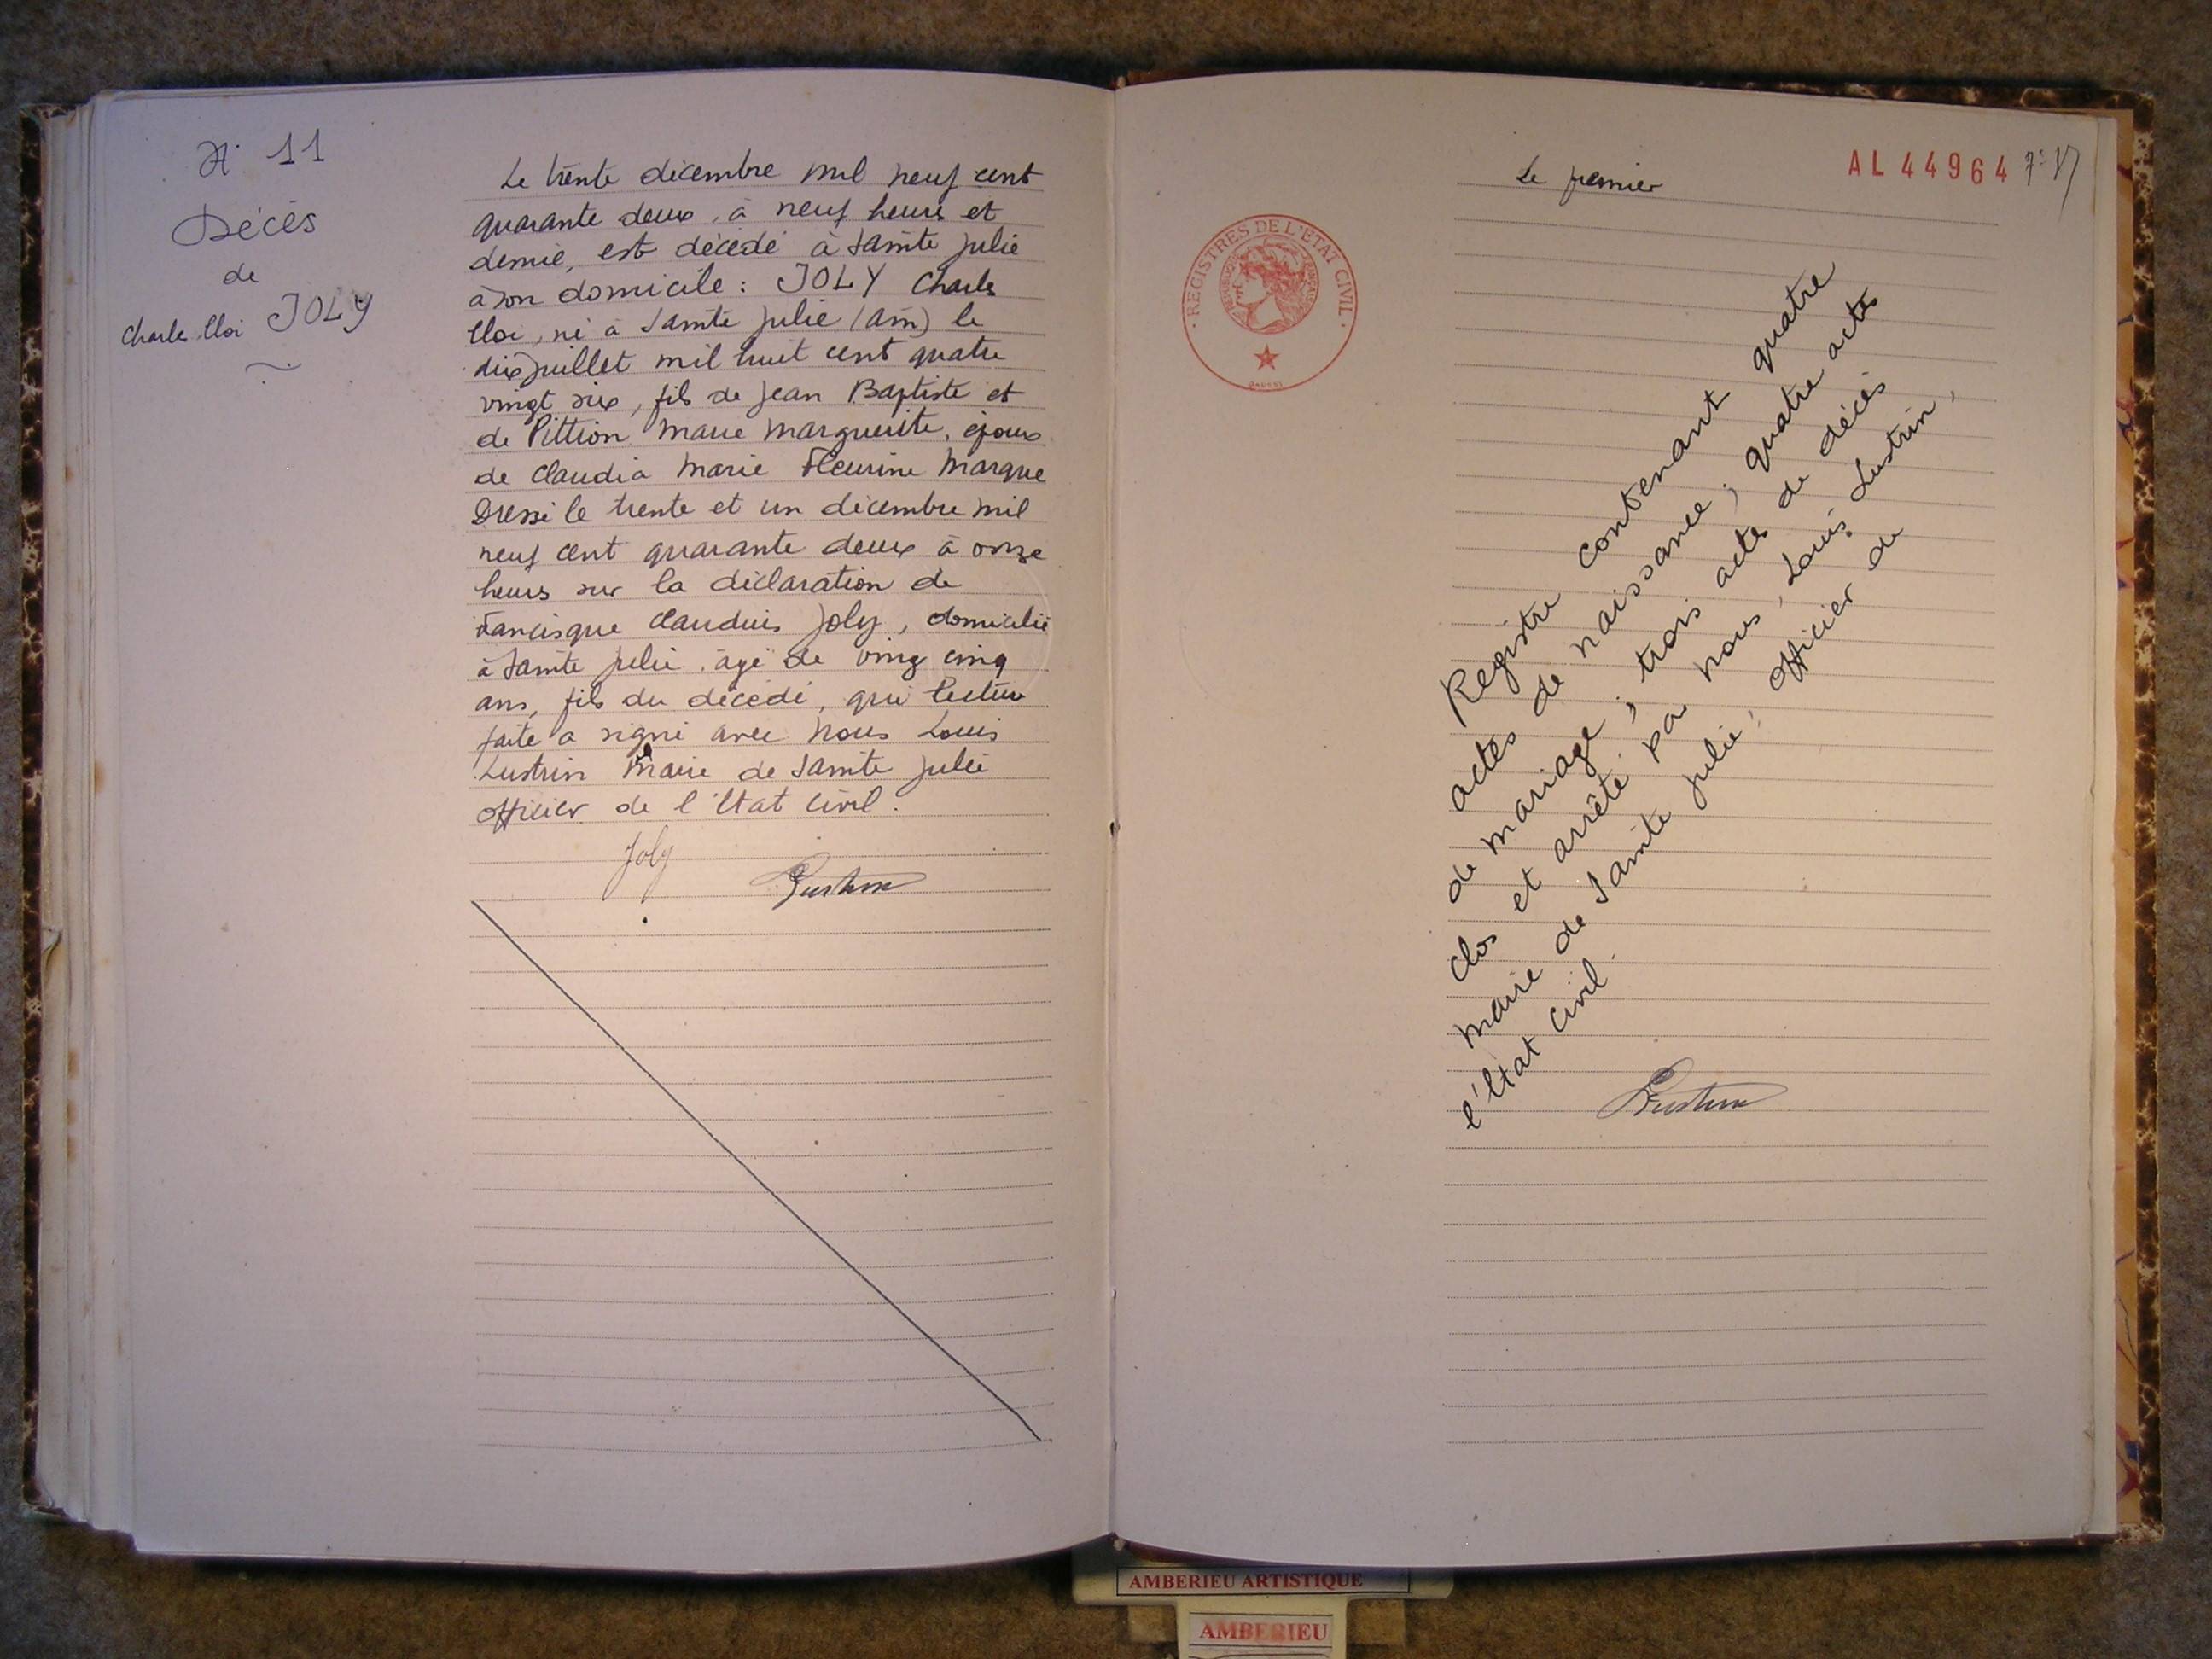 N° 11
Décès
de
Charles Eloi JOLY
Le trente décembre mil neuf cent
quarante deux, à neuf heures et
demie, est décédé à Sainte Julie
à son domicile : JOLY Charles
Eloi, né à Sainte Julie (Ain) le
dix juillet mil huit cent quatre
vingt six, fils de Jean Baptiste et
de Pittion Marie Marguerite, époux
de Claudia Marie Fleurine Marque
Dressé le trente et un décembre mil
neuf cent quarante deux à onze
heures sur la déclaration de
Francisque Claudius Joly, domicilié
à Sainte Julie, âgé de ving cinq
ans, fils du décédé, qui lecture
faite a signé avec Nous Louis
Lustrin Maire de Sainte Julie
officier de l'Etat Civil.
Joly
Lustrin
Le premier
AL 44964
REGISTRES DE L'ETAT CIVIL
REPUBLIQUE FRANÇAISE
Registre contenant quatre
actes de naissance ; quatre actes
de mariage ; trois actes de décès
clos et arrêté par nous, Louis Lustrin,
maire de Sainte Julie, officier de
l'Etat Civil.
Lustrin
AMBERIEU ARTISTIQUE
AMBERIEU